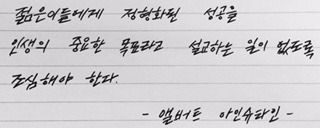 젊은이들에게 정형화된 성공을
인생의 중요한 목표라고 설교하는 일이 없도록
조심해야 한다.
- 앨버트 아인슈타인 -